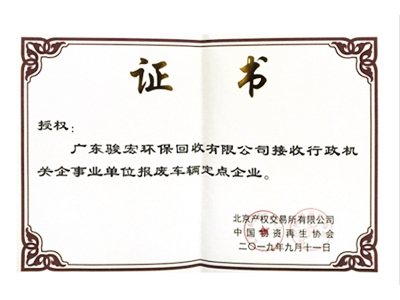 证 书
授权：
广东骏宏环保回收有限公司接收行政机
关企事业单位报废车辆定点企业。
北京产权交易所有限公司
中国物资再生协会
二〇一九年九月十一日